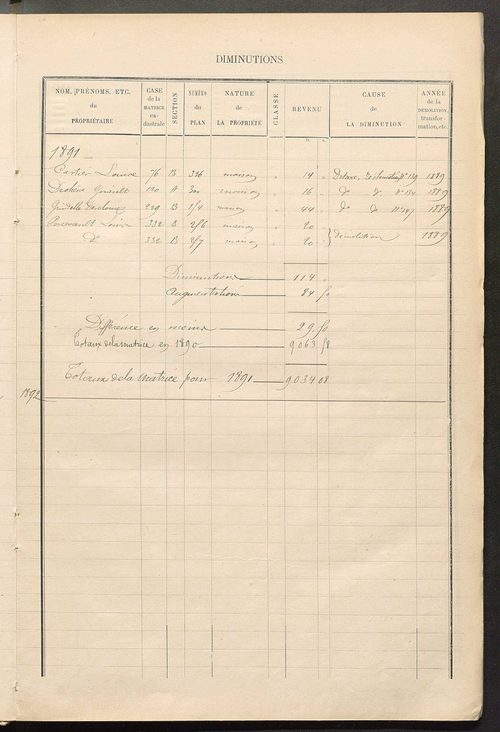 DIMINUTIONS
NOM, PRÉNOMS, ETC. du PROPRIÉTAIRE
CASE de la MATRICE ca-dastrale
SECTION
NUMÉRO du PLAN
NATURE de LA PROPRIÉTÉ
CLASSE
REVENU
CAUSE de LA DIMINUTION
ANNÉE de la DÉMOLITION, transfor-mation, etc.
1891
Cartier Louise 76 B 326 maison 14 1889
190 A maison 16 d° d° 1889
229 B 2/4 maison 44 d° d° 1889
Louis 332 B 2/6 maison 20
d° 332 B 2/7 maison 20 démolition 1889
Diminution 114
Augmentation 84 50
Différence en moins 29.50
Totaux de la matrice en 1890 9063 58
Totaux de la matrice pour 1891 9034 08
1892